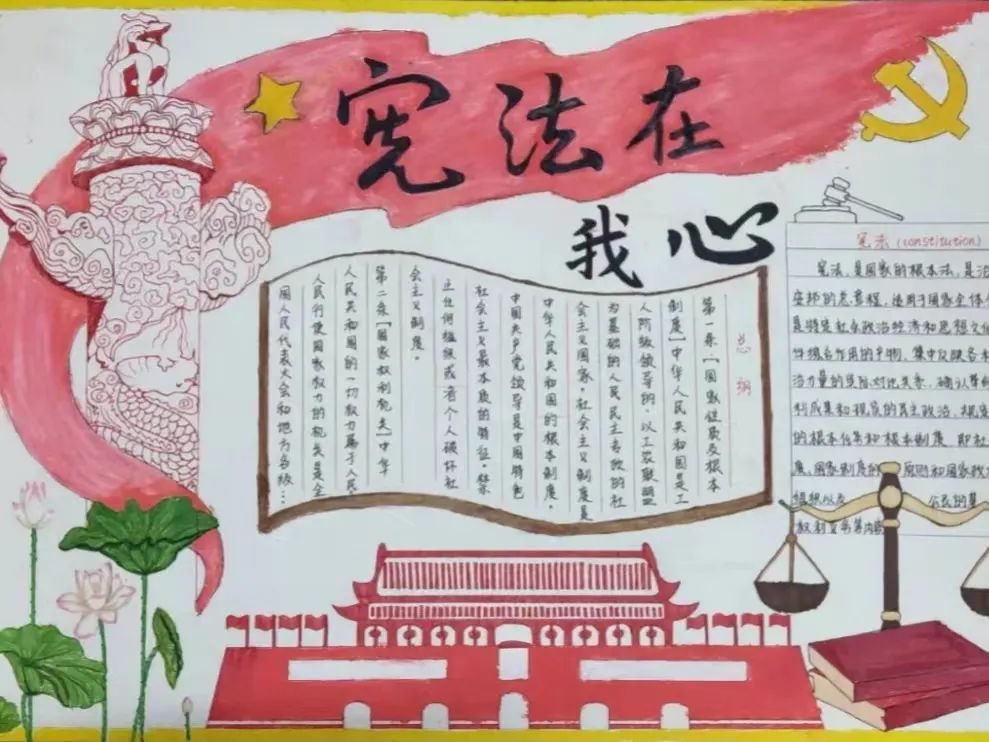 宪法在
我心
总纲
第一条.[国家性质及根本
制度]中华人民共和国是工
人阶级领导的.以工农联盟
为基础的人民民主专政的社
会主义国家.社会主义制度是
中华人民共和国的根本制度.
中国共产党领导是中国特色
社会主义最本质的特征.禁
止任何组织或者个人破坏社
会主义制度。
第二条[国家权利机关]中华
人民共和国的一切权力属于人民
人民行使国家权力的机关是全
国人民代表大会和地方各级…
宪法 (constitution)
宪法,是国家的根本法,是治
安邦的总章程,适用于国家全体
是特定社会政治经济和思想文化
件综合作用的产物,集中反映各
治力量的实际对比关系,确认革命
利成果和现实的民主政治,规定
的根本任务和根本制度 即社
度、国家制度的 原则和国家政
组织以及 公民的基
权利义务等内容